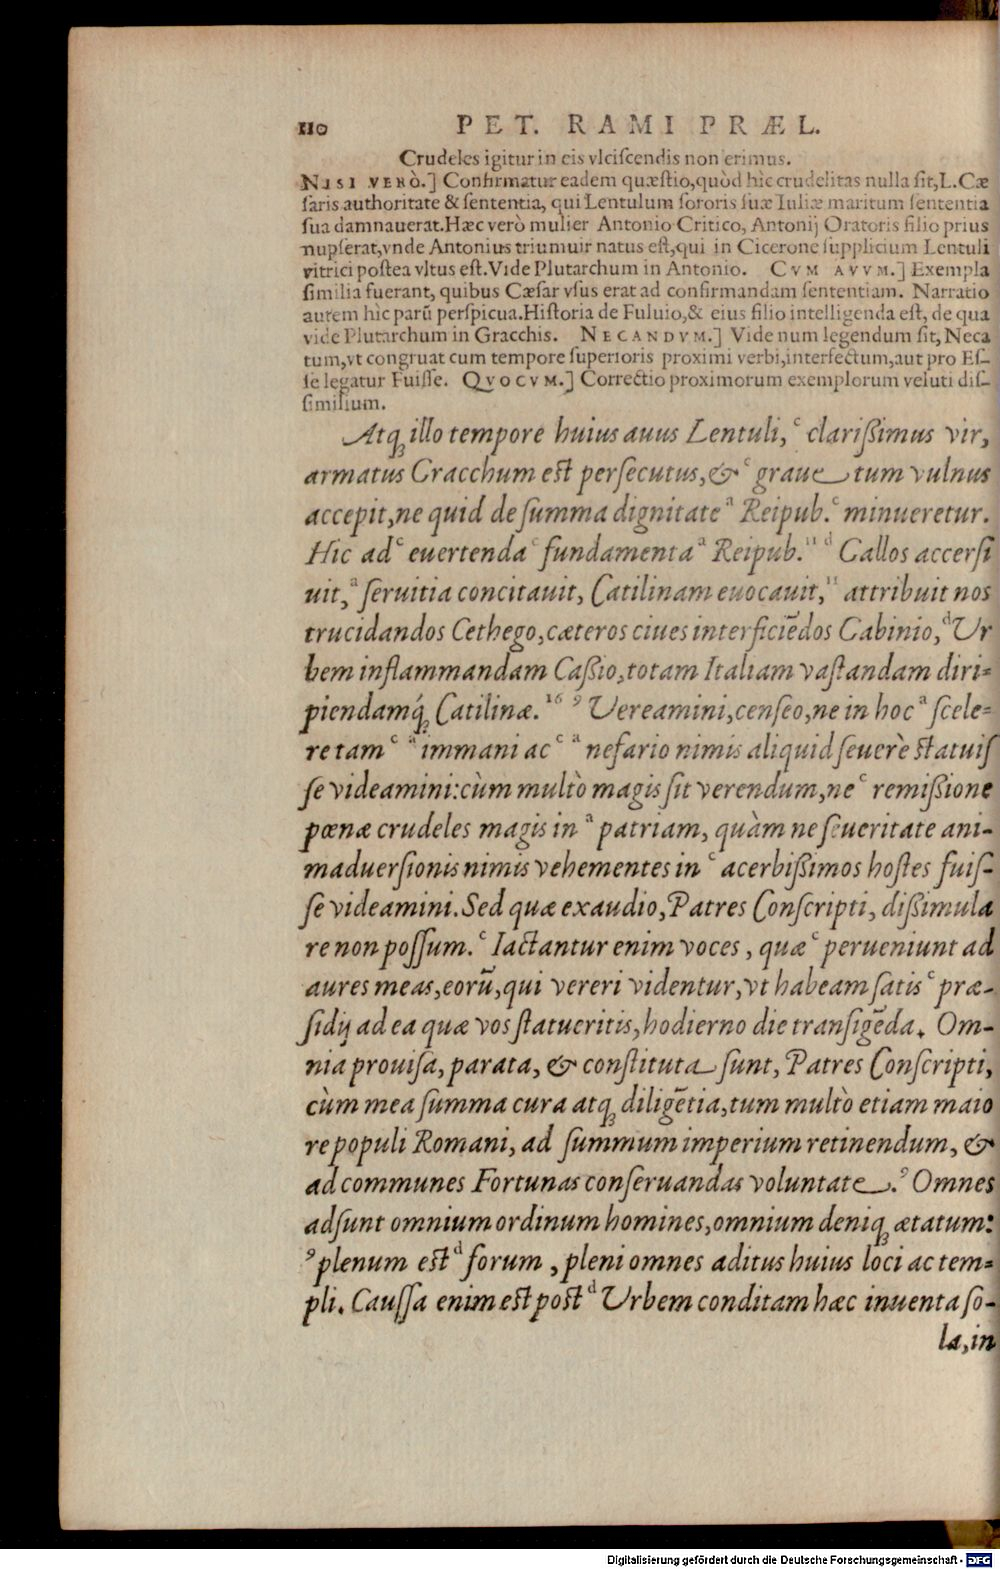 110 PET. RAMI PRÆL.
Crudeles igitur in eis vlciscendis non erimus.
NISI VERÒ.] Confirmatur eadem quæstio, quòd hîc crudelitas nulla sit, L. Cæ
saris authoritate & sententia, qui Lentulum sororis suæ Iuliæ maritum sententia
sua damnauerat. Hæc verò mulier Antonio Critico, Antonij Oratoris filio prius
nupserat, vnde Antonius triumuir natus est, qui in Cicerone supplicium Lentuli
vitrici postea vltus est. Vide Plutarchum in Antonio. CVM AVVM.] Exempla
similia fuerant, quibus Cæsar vsus erat ad confirmandam sententiam. Narratio
autem hîc parũ perspicua. Historia de Fuluio, & eius filio intelligenda est, de qua
vide Plutarchum in Gracchis. NECANDVM.] Vide num legendum sit, Neca
tum, vt congruat cum tempore superioris proximi verbi, interfectum, aut pro Es-
se legatur Fuisse. QVOCVM.] Correctio proximorum exemplorum veluti dis-
similium.
Atq; illo tempore huius auus Lentuli, ᶜ clarißimus vir,
armatus Gracchum est persecutus, & ᶜ graue tum vulnus
accepit, ne quid de summa dignitate ᵃ Reipub. ᶜ minueretur.
Hic ad ᶜ euertenda ᶜ fundamenta ᵃ Reipub. ¹¹ ᵈ Gallos accersi
uit, ᵃ seruitia concitauit, Catilinam euocauit, ¹¹ attribuit nos
trucidandos Cethego, cæteros ciues interficiẽdos Gabinio, ᵈ Vr
bem inflammandam Caßio, totam Italiam vastandam diri-
piendamq́; Catilinæ. ¹⁶ ⁹ Vereamini, censeo, ne in hoc ᵃ scele-
re tam ᶜ ᵃ immani ac ᶜ ᵃ nefario nimis aliquid seuerè statuis
se videamini: cùm multò magis sit verendum, ne ᶜ remißione
pœnæ crudeles magis in ᵃ patriam, quàm ne seueritate ani-
maduersionis nimis vehementes in ᶜ acerbißimos hostes fuis-
se videamini. Sed quæ exaudio, Patres Conscripti, dißimula
re non possum. ᶜ Iactantur enim voces, quæ ᶜ perueniunt ad
aures meas, eorũ, qui vereri videntur, vt habeam satis ᶜ præ-
sidij ad ea quæ vos statueritis, hodierno die transigẽda. Om-
nia prouisa, parata, & constituta sunt, Patres Conscripti,
cùm mea summa cura atq; diligẽtia, tum multò etiam maio
re populi Romani, ad summum imperium retinendum, &
ad communes Fortunas conseruandas voluntate. ⁹ Omnes
adsunt omnium ordinum homines, omnium deniq; ætatum:
⁹ plenum est ᵈ forum, pleni omnes aditus huius loci ac tem-
pli. Caussa enim est post ᵈ Vrbem conditam hæc inuenta so-
la, in
Digitalisierung gefördert durch die Deutsche Forschungsgemeinschaft - DFG